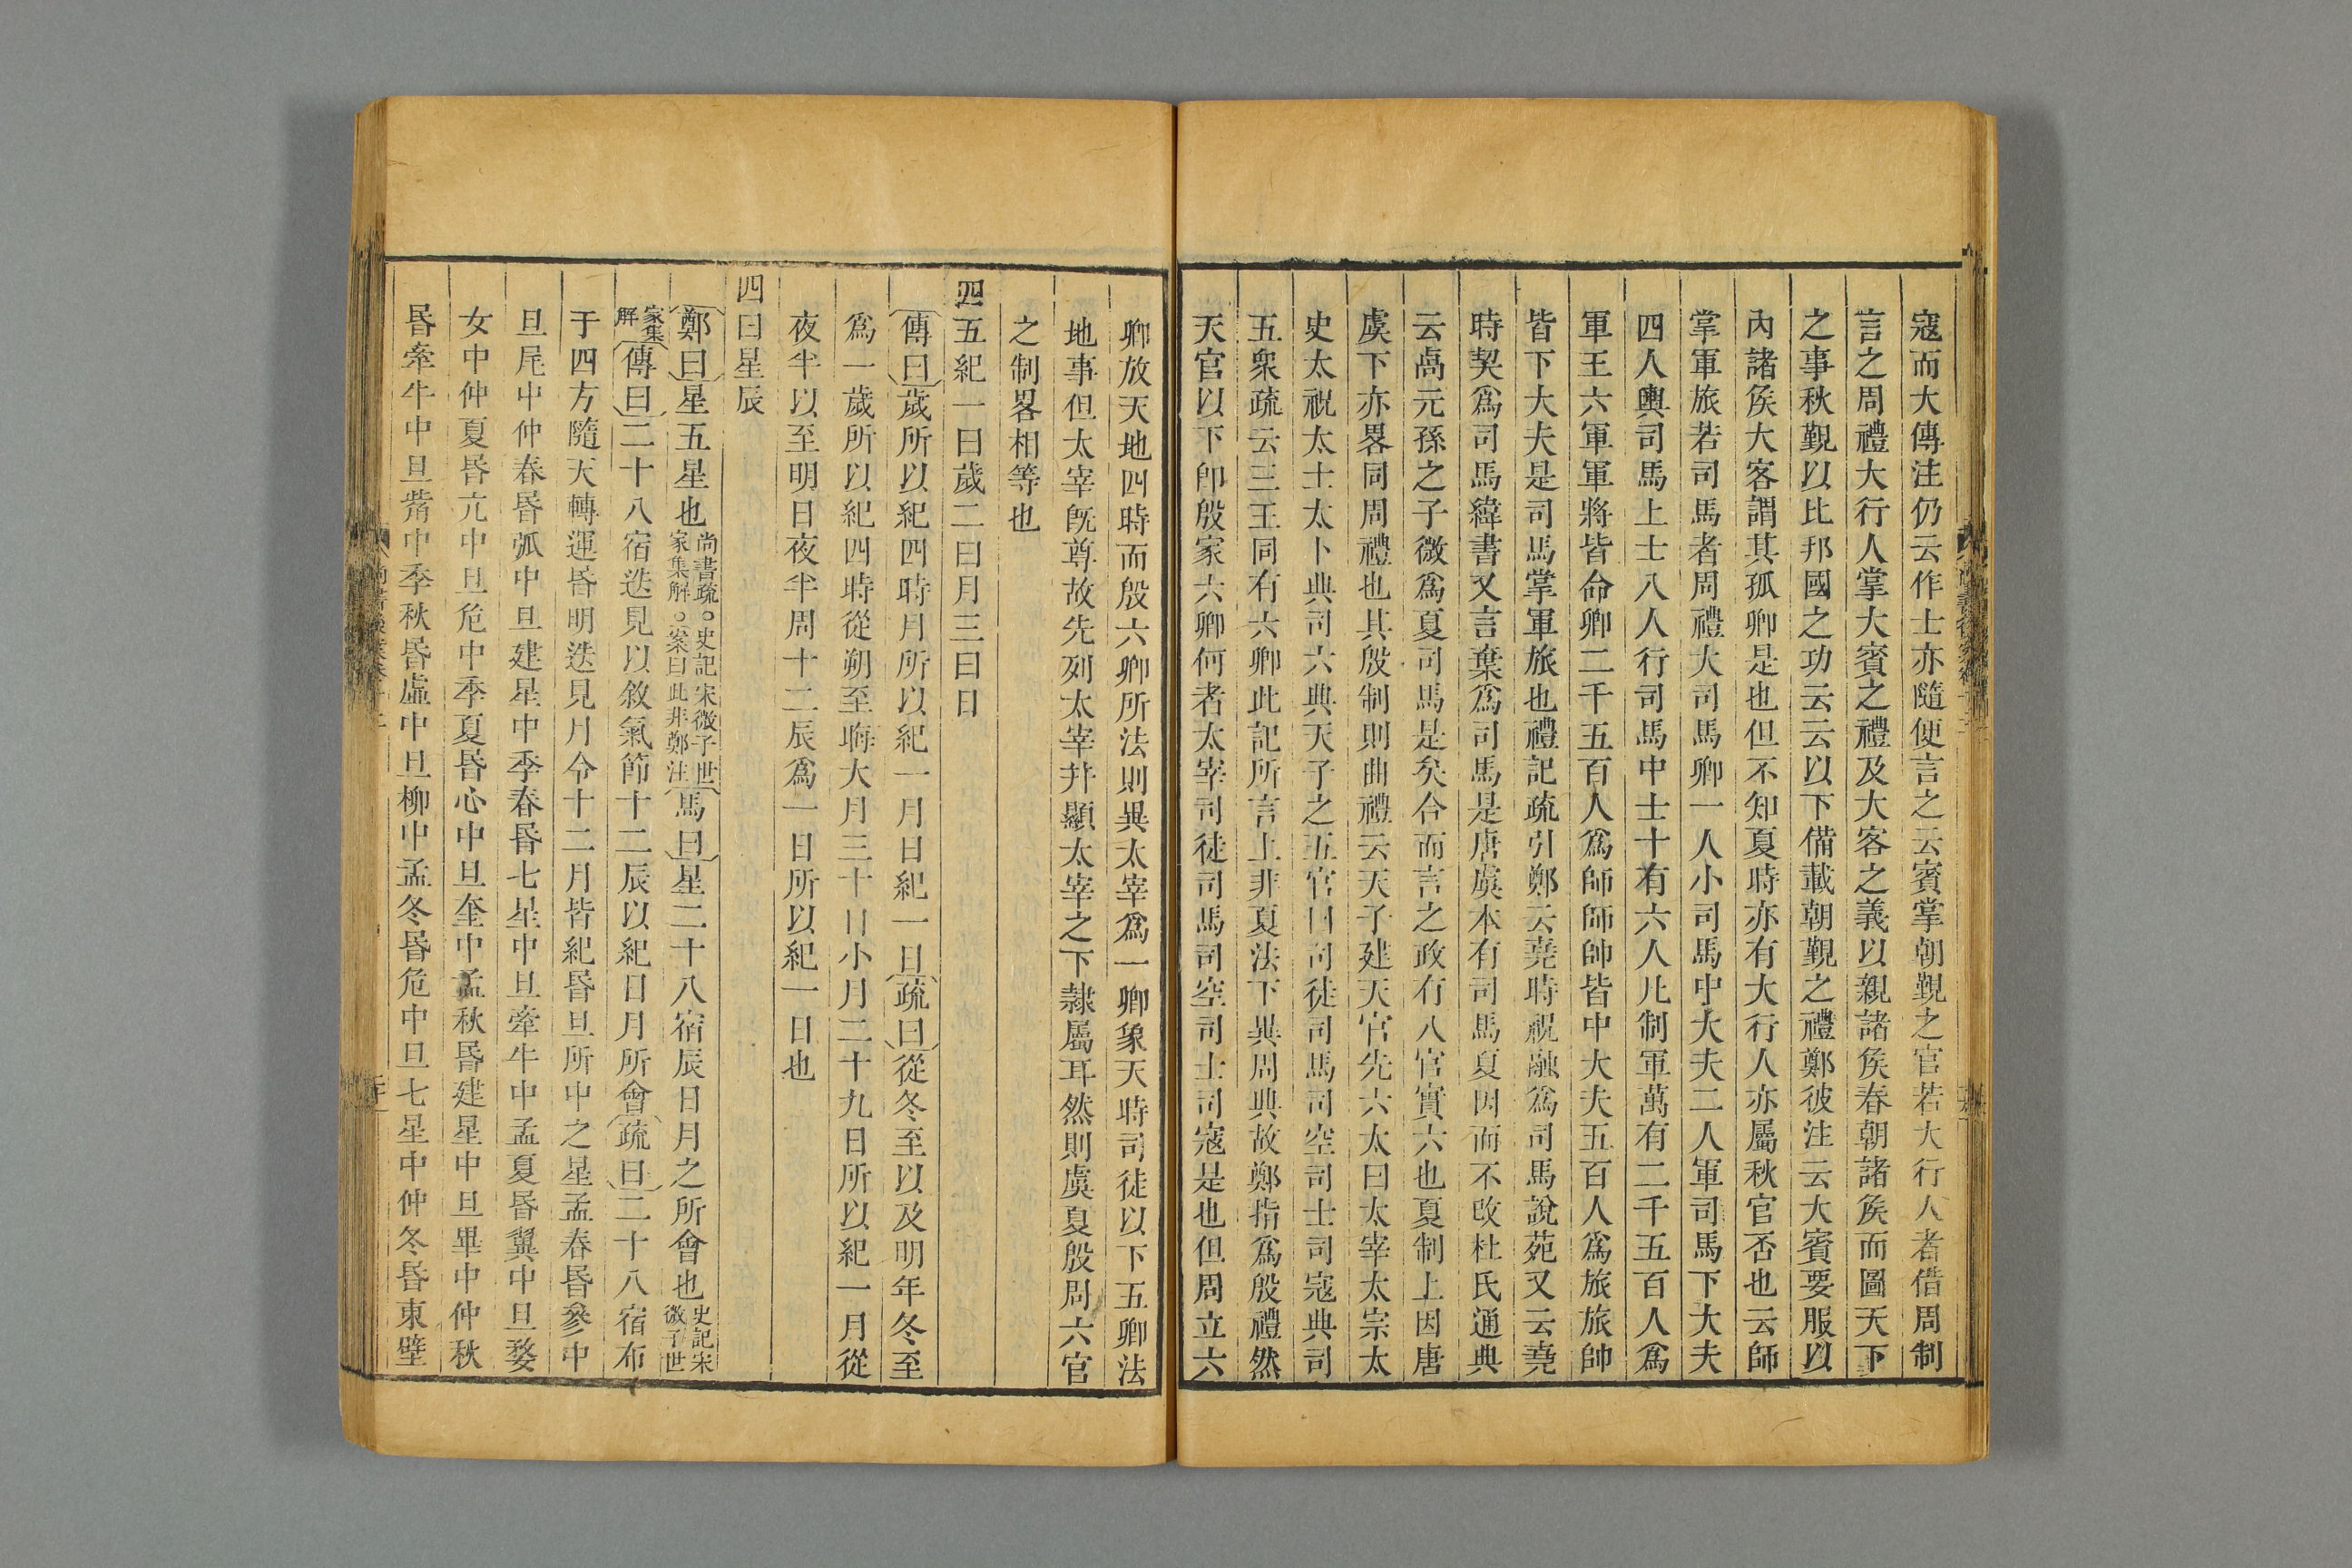 寇而大傳注仍云作士亦隨便言之云賓掌朝覲之官若大行人者借周制
言之周禮大行人掌大賓之禮及大客之義以親諸矦春朝諸矦而圖天下
之事秋覲以比邦國之功云云以下備載朝覲之禮鄭彼注云大賓要服以
內諸矦大客謂其孤卿是也但不知夏時亦有大行人亦屬秋官否也云師
掌軍旅若司馬者周禮大司馬卿一人小司馬中大夫二人軍司馬下大夫
四人輿司馬上士八人行司馬中士十有六人凡制軍萬有二千五百人爲
軍王六軍軍將皆命卿二千五百人爲師師帥皆中大夫五百人爲旅旅帥
皆下大夫是司馬掌軍旅也禮記疏引鄭云堯時祝融爲司馬說苑又云堯
時契爲司馬緯書又言棄爲司馬是唐虞本有司馬夏因而不改杜氏通典
云卨元孫之子微爲夏司馬是矣合而言之政有八官實六也夏制上因唐
虞下亦畧同周禮也其殷制則曲禮云天子建天官先六太曰太宰太宗太
史太祝太士太卜典司六典天子之五官曰司徒司馬司空司士司寇典司
五衆疏云三王同有六卿此記所言上非夏法下異周典故鄭指爲殷禮然
天官以下卽殷家六卿何者太宰司徒司馬司空司士司寇是也但周立六
卿放天地四時而殷六卿所法則異太宰爲一卿象天時司徒以下五卿法
地事但太宰旣尊故先列太宰并顯太宰之下隸屬耳然則虞夏殷周六官
之制畧相等也
四五紀一曰歲二曰月三曰日
傳曰歲所以紀四時月所以紀一月日紀一日疏曰從冬至以及明年冬至
爲一歲所以紀四時從朔至晦大月三十日小月二十九日所以紀一月從
夜半以至明日夜半周十二辰爲一日所以紀一日也
四曰星辰
鄭曰星五星也尚書疏○史記宋微子世家集解○案曰此非鄭注馬曰星二十八宿辰日月之所會也史記宋微子世
家集解傳曰二十八宿迭見以敘氣節十二辰以紀日月所會疏曰二十八宿布
于四方隨天轉運昏明迭見月令十二月皆紀昏旦所中之星孟春昏參中
旦尾中仲春昏弧中旦建星中季春昏七星中旦牽牛中孟夏昏翼中旦婺
女中仲夏昏亢中旦危中季夏昏心中旦奎中孟秋昏建星中旦畢中仲秋
昏牽牛中旦觜中季秋昏虛中旦柳中孟冬昏危中旦七星中仲冬昏東壁